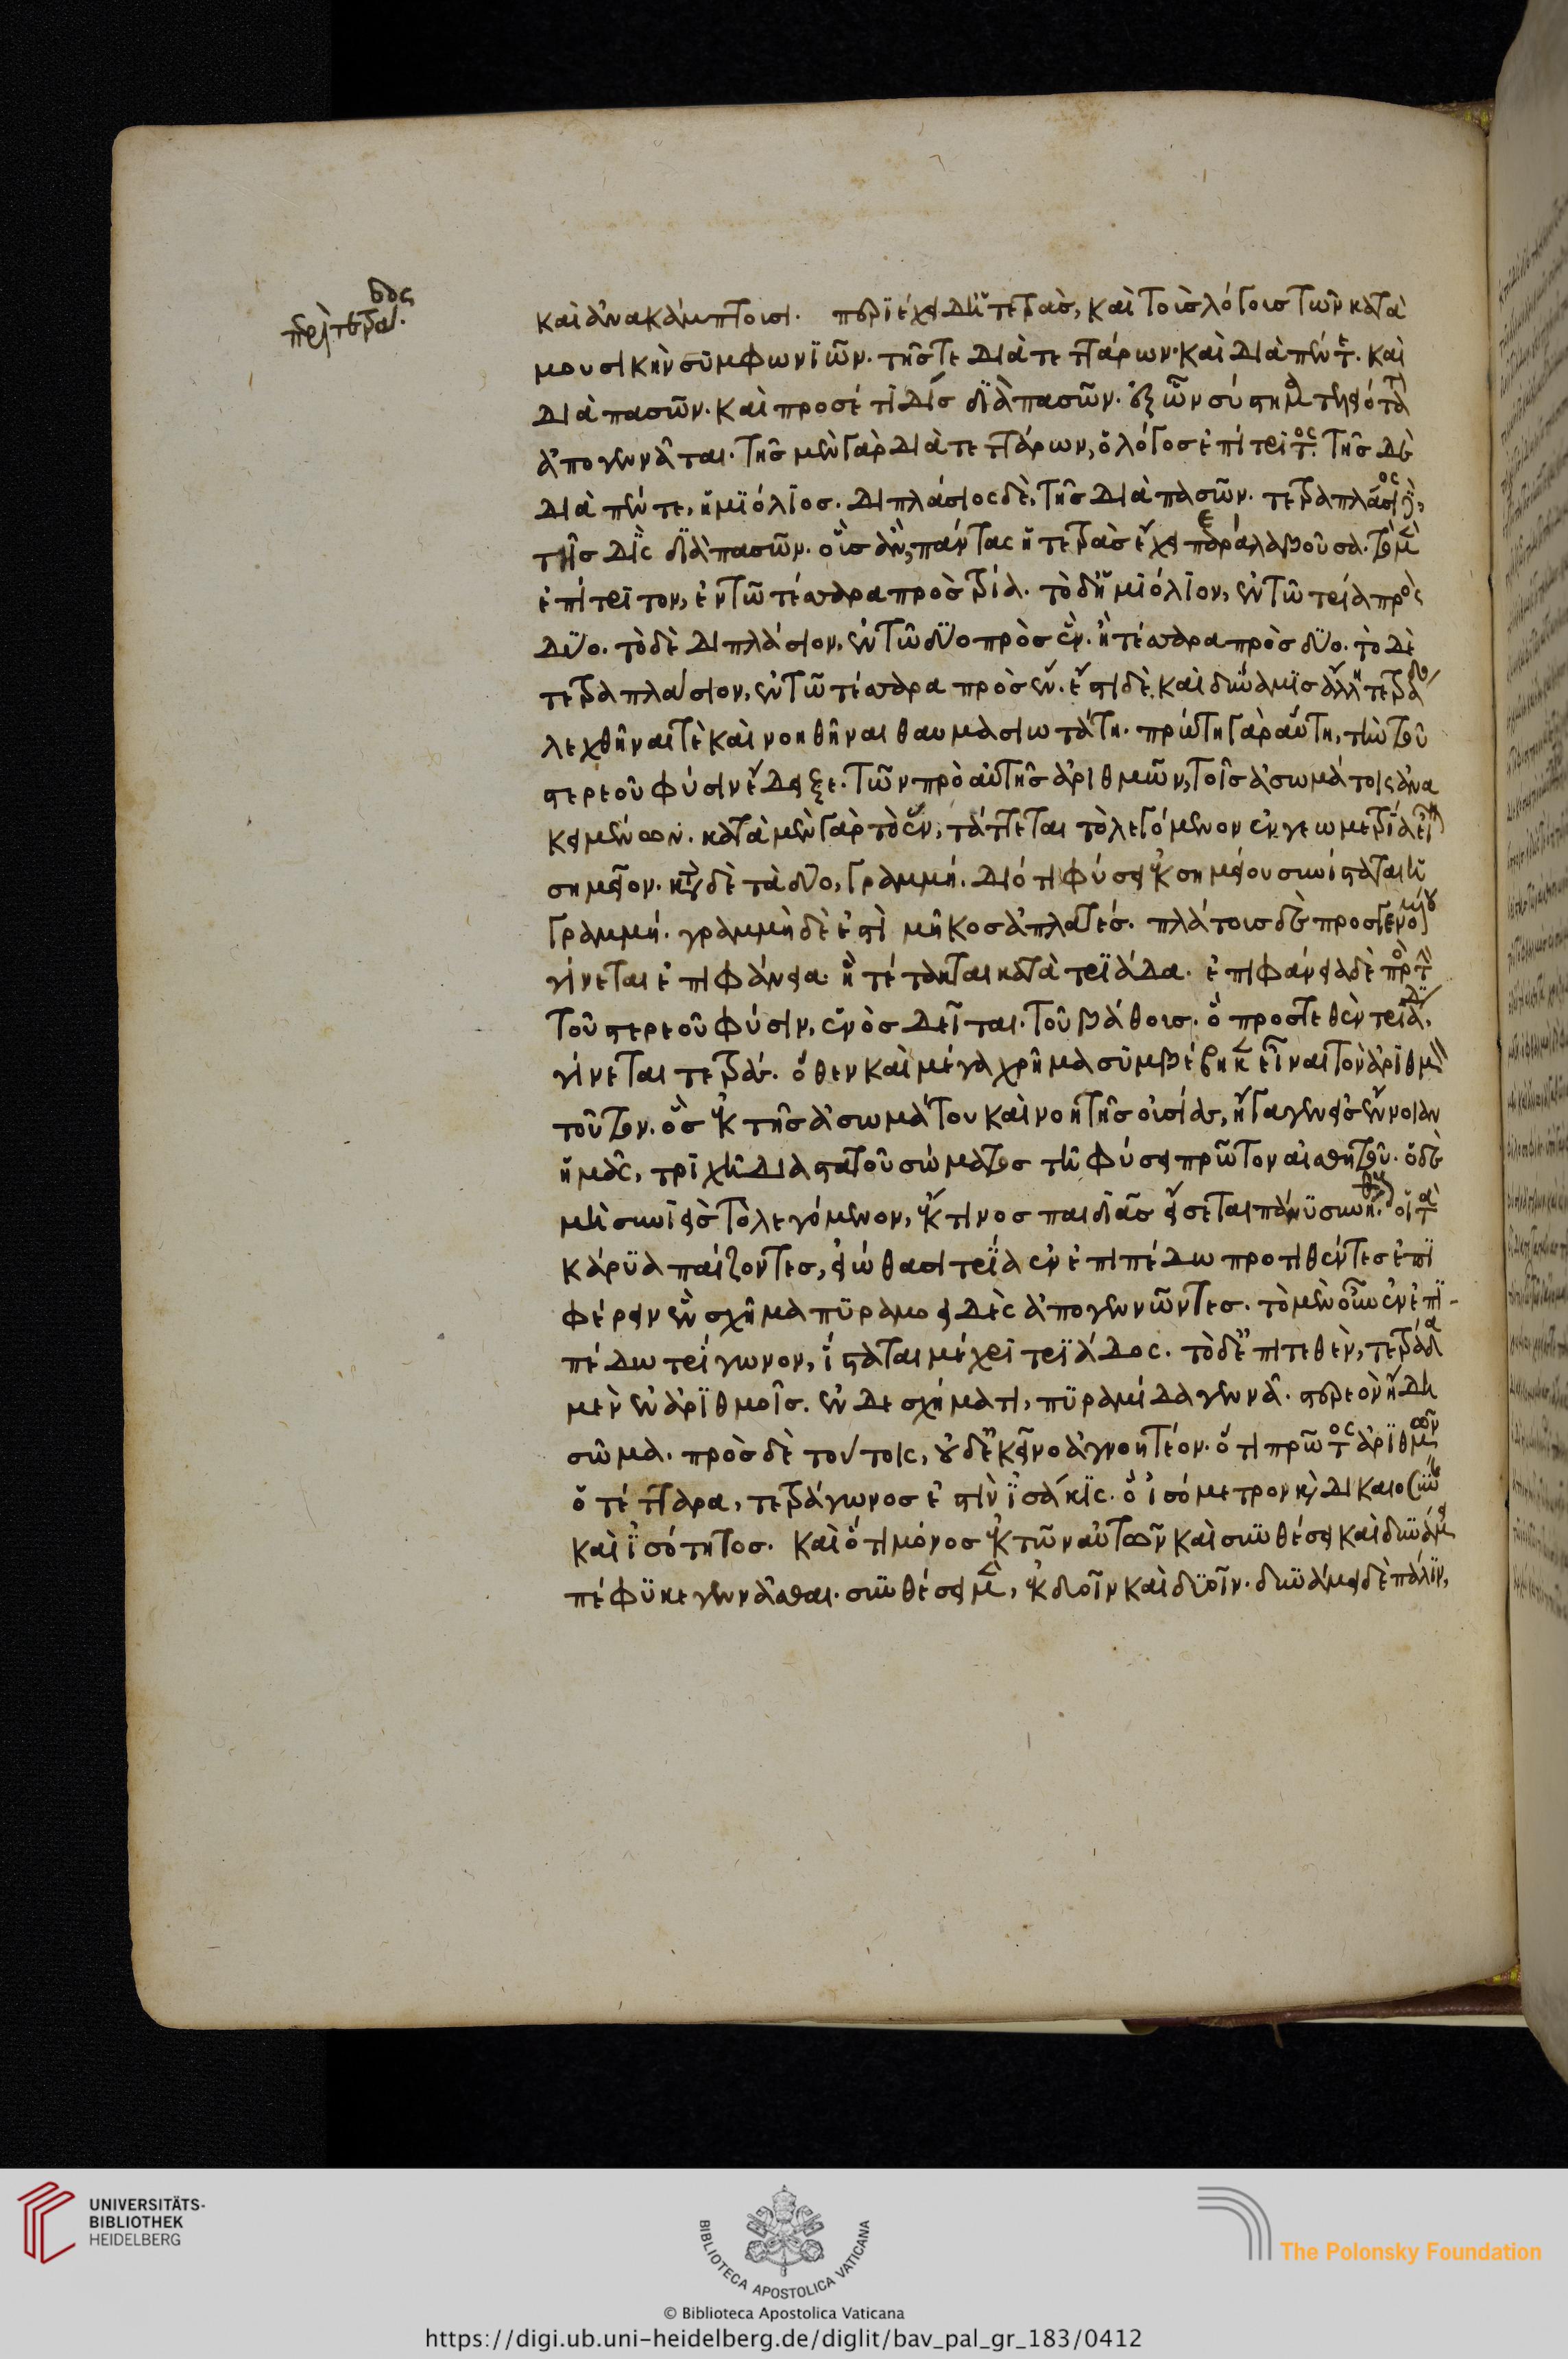 περὶ τετράδος
καὶ ἀνακάμπτουσι. περιέχει δ' ἡ τετρὰς, καὶ τοὺς λόγους τῶν κατὰ
μουσικὴν συμφωνιῶν. τῆς τε διὰ τεττάρων· καὶ διὰ πέντε. καὶ
διὰ πασῶν. καὶ προσέτι δὶς διὰ πασῶν. ἐξ ὧν σύστημα τελειότατον
ἀπογεννᾶται. τῆς μὲν γὰρ διὰ τεττάρων, ὁ λόγος ἐπίτριτος. τῆς δὲ
διὰ πέντε, ἡμιόλιος. διπλάσιος δὲ, τῆς διὰ πασῶν. τετραπλάσιος δὲ,
τῆς δὶς διὰ πασῶν. οὓς ἅπαντας ἡ τετρὰς ἔχει παραλαβοῦσα. τὸν μὲν
ἐπίτριτον, ἐν τῷ τέσσαρα πρὸς τρία. τὸ δ' ἡμιόλιον, ἐν τῷ τρία πρὸς
δύο. τὸ δὲ διπλάσιον, ἐν τῷ δύο πρὸς ἕν. ἢ τέσσαρα πρὸς δύο. τὸ δὲ
τετραπλάσιον, ἐν τῷ τέσσαρα πρὸς ἕν. ἔστι δὲ καὶ δύναμις ἄλλη τετράδος
λεχθῆναι τὲ καὶ νοηθῆναι θαυμασιωτάτη. πρώτη γὰρ αὕτη, τὴν τοῦ
στερεοῦ φύσιν ἔδειξε. τῶν πρὸ αὐτῆς ἀριθμῶν, τοῖς ἀσωμάτοις ἀνα
κειμένων. κατὰ μὲν γὰρ τὸ ἓν, τάττεται τὸ λεγόμενον ἐν γεωμετρίᾳ
σημεῖον. κατὰ δὲ τὰ δύο, γραμμή. διότι φύσει ἐκ σημείου συνίσταται ἡ
γραμμή. γραμμὴ δὲ ἐστὶ μῆκος ἀπλατές. πλάτους δὲ προσγενομένου
γίνεται ἐπιφάνεια. ἣ τέτακται κατὰ τριάδα. ἐπιφάνεια δὲ πρὸς τὴν
τοῦ στερεοῦ φύσιν, ἑνὸς δεῖται. τοῦ βάθους. ὃ προστεθὲν τριάδι,
γίνεται τετράς. ὅθεν καὶ μέγα χρῆμα συμβέβηκεν εἶναι τὸν ἀριθμὸν
τοῦτον. ὃς ἐκ τῆς ἀσωμάτου καὶ νοητῆς οὐσίας, ἤγαγεν εἰς ἔννοιαν
ἡμᾶς, τριχῆ διαστατοῦ σώματος τῇ φύσει πρῶτον αἰσθητοῦ. ὁ δὲ
μὴ συνιεὶς τὸ λεγόμενον, ἔκ τινος παιδιᾶς εἴσεται πάνυ συνήθους. οἱ τὰ
κάρυα παίζοντες, εἰώθασι τρία ἐν ἐπιπέδῳ προτιθέντες ἐπι
φέρειν ἓν σχῆμα πυραμοειδὲς ἀπογεννῶντες. τὸ μὲν οὖν ἐν ἐπι-
πέδῳ τρίγωνον, ἵσταται μέχρι τριάδος. τὸ δ' ἐπιτεθὲν, τετράδα
μὲν ἐν ἀριθμοῖς. ἐν δὲ σχήματι, πυραμίδα γεννᾷ. στερεὸν ἤδη
σῶμα. πρὸς δὲ τούτοις, οὐδ' ἐκεῖνο ἀγνοητέον. ὅτι πρῶτος ἀριθμῶν
ὁ τέτταρα, τετράγωνος ἐστὶν ἰσάκις. ὃ ἰσόμετρον καὶ δικαιοσύνης
καὶ ἰσότητος. καὶ ὅτι μόνος ἐκ τῶν αὐτῶν καὶ συνθέσει καὶ δυνάμει
πέφυκε γεννᾶσθαι. συνθέσει μὲν, ἐκ δυοῖν καὶ δυοῖν. δυνάμει δὲ πάλιν,
UNIVERSITÄTS-
BIBLIOTHEK
HEIDELBERG
BIBLIOTECA APOSTOLICA VATICANA
© Biblioteca Apostolica Vaticana
The Polonsky Foundation
https://digi.ub.uni-heidelberg.de/diglit/bav_pal_gr_183/0412